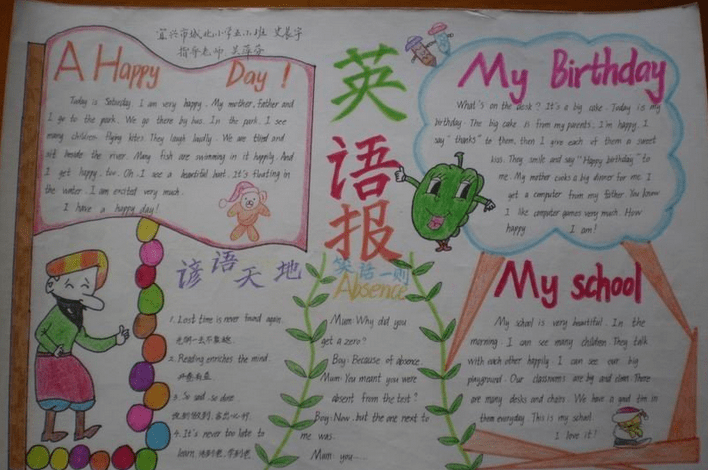 宜兴市城北小学五
指导老师
A Happy Day!
Today is Saturday. I am very happy. My mother, father and
I go to the park. We go there by bus. In the park, I see
many children flying kites. They laugh loudly. We are tired and
sit beside the river. Many fish are swimming in it happily. And
I get happy, too. Oh, I see a beautiful boat. It's floating in
the water. I am excited very much.
I have a happy day!
英
语
报
My Birthday
What's on the desk? It's a big cake. Today is my
birthday. The big cake is from my parents, I'm happy, I
say "thanks" to them, then I give each of them a sweet
kiss. They smile and say "Happy birthday" to
me. My mother cooks a big dinner for me. I
get a computer from my father. You know
I like computer games very much. How
happy I am!
谚语天地
1. Lost time is never found again.
2. Reading enriches the mind.
开卷有益
3. So said, so done
说到做到,
4. It's never too late to
learn. 活到老,学到老
笑话一则
Absence
Mum: Why did you
get a zero?
Boy: Because of absence.
Mum: You meant you were
absent from the test?
Boy: Now, but the one next to
me was.
Mum: you....
My school
My school is very beautiful. In the
morning, I can see many children. They talk
with each other happily. I can see our big
playground. Our classrooms are big and clean. There
are many desks and chairs. We have a good time in
them everyday. This is my school.
I love it!